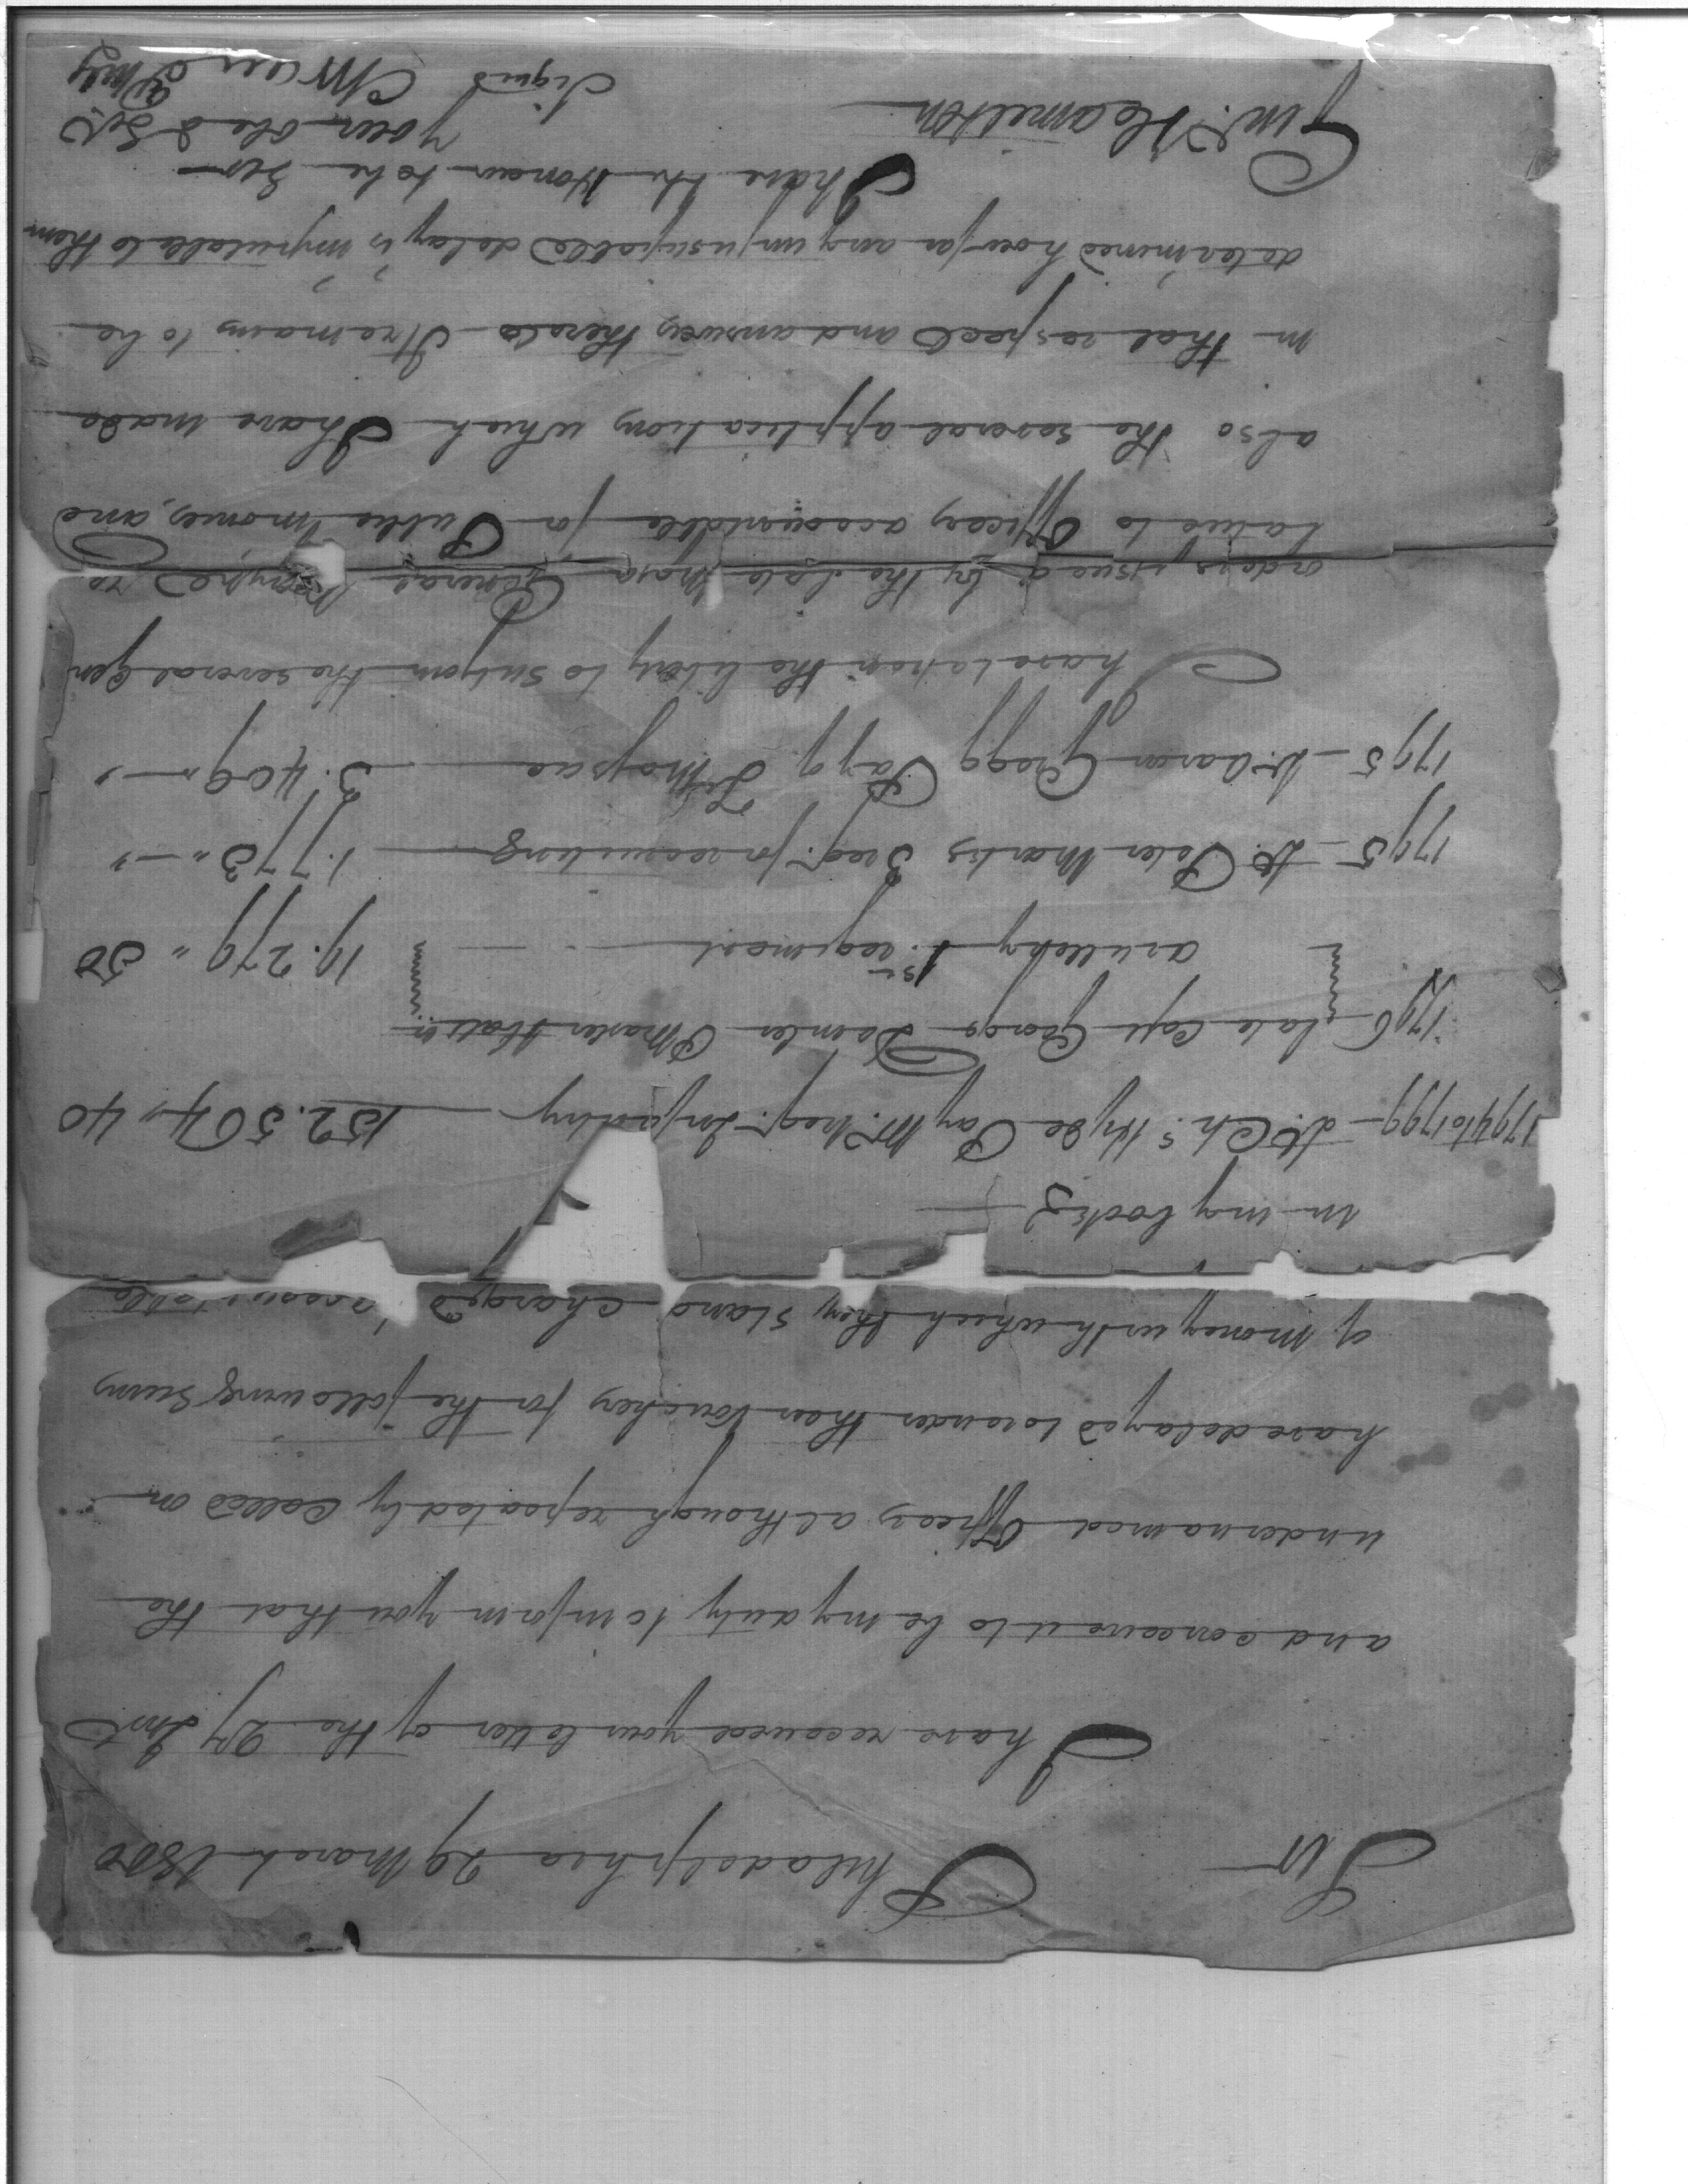 Philadelphia 29 March 1800
Sir
I have received your letter of the 27 Inst
and conceive it to be my duty to inform you that the
undernamed Officers although repeatedly called on
have delayed to render their Vouchers for the following sums
of money with which they stand charged accountable
in my books
1794 to 1799 - Lt Chs Hyde Pay Mr. 1 reg. Infantry 152.504,, 40
1796 late Capt George Demler PMaster Batn
artillery 1st regiment 19.279 " 50
1795 - Lt. Peter Marks 3 reg. for recruiting 1.773 " — "
1795 - Lt Aaron Gregg Pay g 3.409 " — "
I have taken the liberty to subjoin the several Gen
orders issued by the late Major General Wayne re
lative to Officers accountable for Public monies, and
also the several applications which I have made
in that respect and answers thereto It remains to be
determined how far any unjustifiable delay is imputable to them
I have the Honour to be Sir
your obed Sert
Signed C Swan
Genl. Hamilton